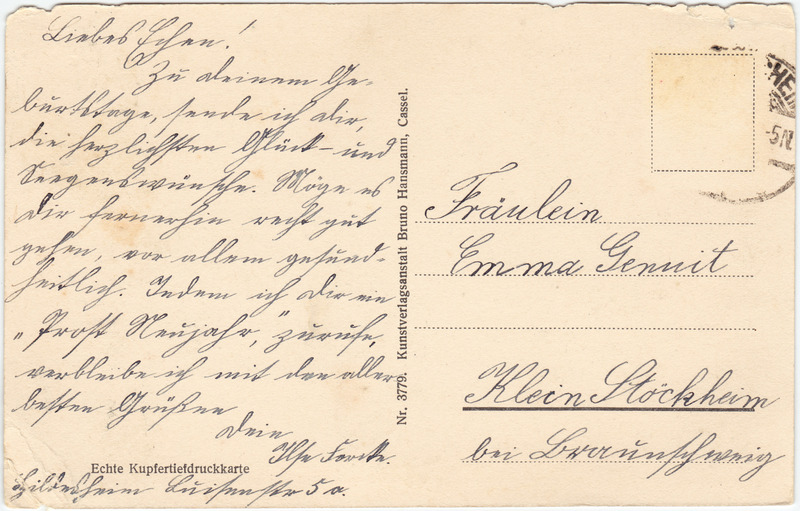 Liebes Echen!
Zu deinem Ge-
burtstage, sende ich dir,
die herzlichsten Glück- und
Seegenswünsche. Möge es
dir fernerhin recht gut
gehen, vor allem gesund-
heitlich. Indem ich dir ein
„Prost Neujahr," zurufe,
verbleibe ich mit den aller
besten Grüßen
Dein
Ilse Forcke.
Hildesheim Luisenstr 5a.
Echte Kupfertiefdruckkarte
Nr. 3779. Kunstverlagsanstalt Bruno Hansmann, Cassel.
Fräulein
Emma Genuit
Klein Stöckheim
bei Braunschweig
HEIM
-5N